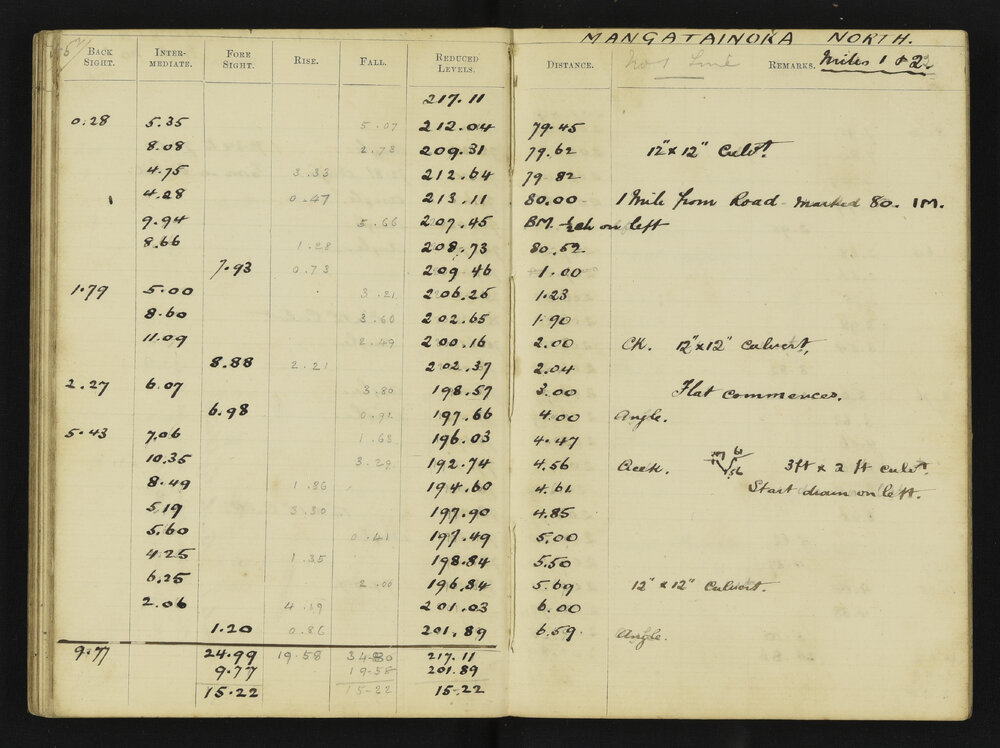 MANGATAINOKA NORTH.
BACK SIGHT. INTER-MEDIATE. FORE SIGHT. RISE. FALL. REDUCED LEVELS. DISTANCE. REMARKS. Miles 1 & 2
217.11
0.28 5.35 5.07 212.04 79.45
8.08 2.73 209.31 79.62 12" x 12" Culvt.
4.75 3.33 212.64 79.82
4.28 0.47 213.11 80.00 1 Mile from Road marked 80. 1M.
9.94 5.66 207.45 BM ½ch on left
8.66 1.28 208.73 80.52
7.93 0.73 209.46 1.00
1.79 5.00 3.21 206.25 1.23
8.60 3.60 202.65 1.90
11.09 2.49 200.16 2.00 CK. 12" x 12" Culvert,
8.88 2.21 202.37 2.04
2.27 6.07 3.80 198.57 3.00 Flat commences.
6.98 0.91 197.66 4.00 Angle.
5.43 7.06 1.63 196.03 4.47
10.35 3.29 192.74 4.56 Creek. 3ft x 2 ft culvt.
8.49 1.86 194.60 4.61 Start drain on left.
5.19 3.30 197.90 4.85
5.60 0.41 197.49 5.00
4.25 1.35 198.84 5.50
6.25 2.00 196.84 5.69 12" x 12" Culvert.
2.06 4.19 201.03 6.00
1.20 0.86 201.89 6.59 Angle.
9.77 24.99 19.58 34.80 217.11
9.77 19.58 201.89
15.22 15.22 15.22